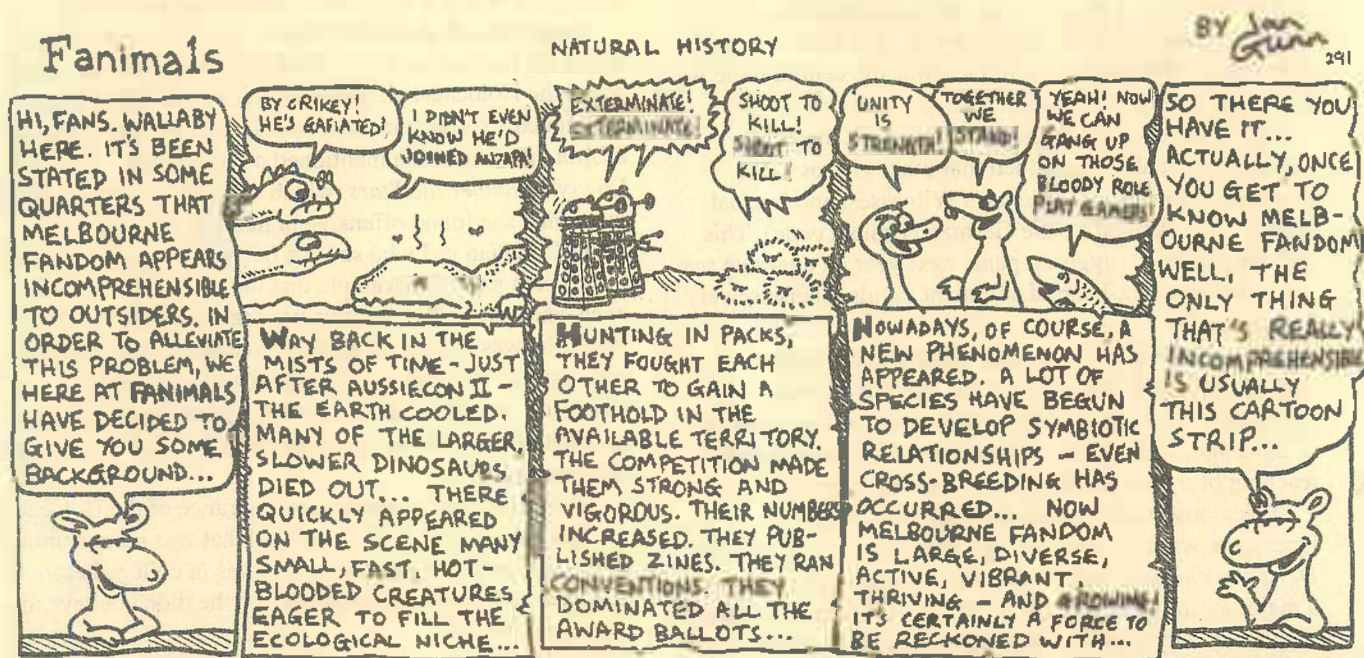 Fanimals
NATURAL HISTORY
BY Ian
Gunn
291
HI, FANS. WALLABY
HERE. IT'S BEEN
STATED IN SOME
QUARTERS THAT
MELBOURNE
FANDOM APPEARS
INCOMPREHENSIBLE
TO OUTSIDERS. IN
ORDER TO ALLEVIATE
THIS PROBLEM, WE
HERE AT FANIMALS
HAVE DECIDED TO
GIVE YOU SOME
BACKGROUND...
BY CRIKEY!
HE'S GAFIATED!
I DIDN'T EVEN
KNOW HE'D
JOINED ANZAPA!
WAY BACK IN THE
MISTS OF TIME - JUST
AFTER AUSSIECON II -
THE EARTH COOLED.
MANY OF THE LARGER,
SLOWER DINOSAURS
DIED OUT... THERE
QUICKLY APPEARED
ON THE SCENE MANY
SMALL, FAST, HOT-
BLOODED CREATURES
EAGER TO FILL THE
ECOLOGICAL NICHE...
EXTERMINATE!
EXTERMINATE!
SHOOT TO
KILL!
SHOOT TO
KILL!
HUNTING IN PACKS,
THEY FOUGHT EACH
OTHER TO GAIN A
FOOTHOLD IN THE
AVAILABLE TERRITORY.
THE COMPETITION MADE
THEM STRONG AND
VIGOROUS. THEIR NUMBERS
INCREASED. THEY PUB-
LISHED ZINES. THEY RAN
CONVENTIONS. THEY
DOMINATED ALL THE
AWARD BALLOTS...
UNITY
IS
STRENGTH!
TOGETHER
WE
STAND!
YEAH! NOW
WE CAN
GANG UP
ON THOSE
BLOODY ROLE
PLAY GAMERS!
NOWADAYS, OF COURSE, A
NEW PHENOMENON HAS
APPEARED. A LOT OF
SPECIES HAVE BEGUN
TO DEVELOP SYMBIOTIC
RELATIONSHIPS - EVEN
CROSS-BREEDING HAS
OCCURRED... NOW
MELBOURNE FANDOM
IS LARGE, DIVERSE,
ACTIVE, VIBRANT
THRIVING - AND GROWING!
IT'S CERTAINLY A FORCE TO
BE RECKONED WITH...
SO THERE YOU
HAVE IT...
ACTUALLY, ONCE
YOU GET TO
KNOW MELB-
OURNE FANDOM
WELL, THE
ONLY THING
THAT'S REALLY
INCOMPREHENSIBLE
IS USUALLY
THIS CARTOON
STRIP...